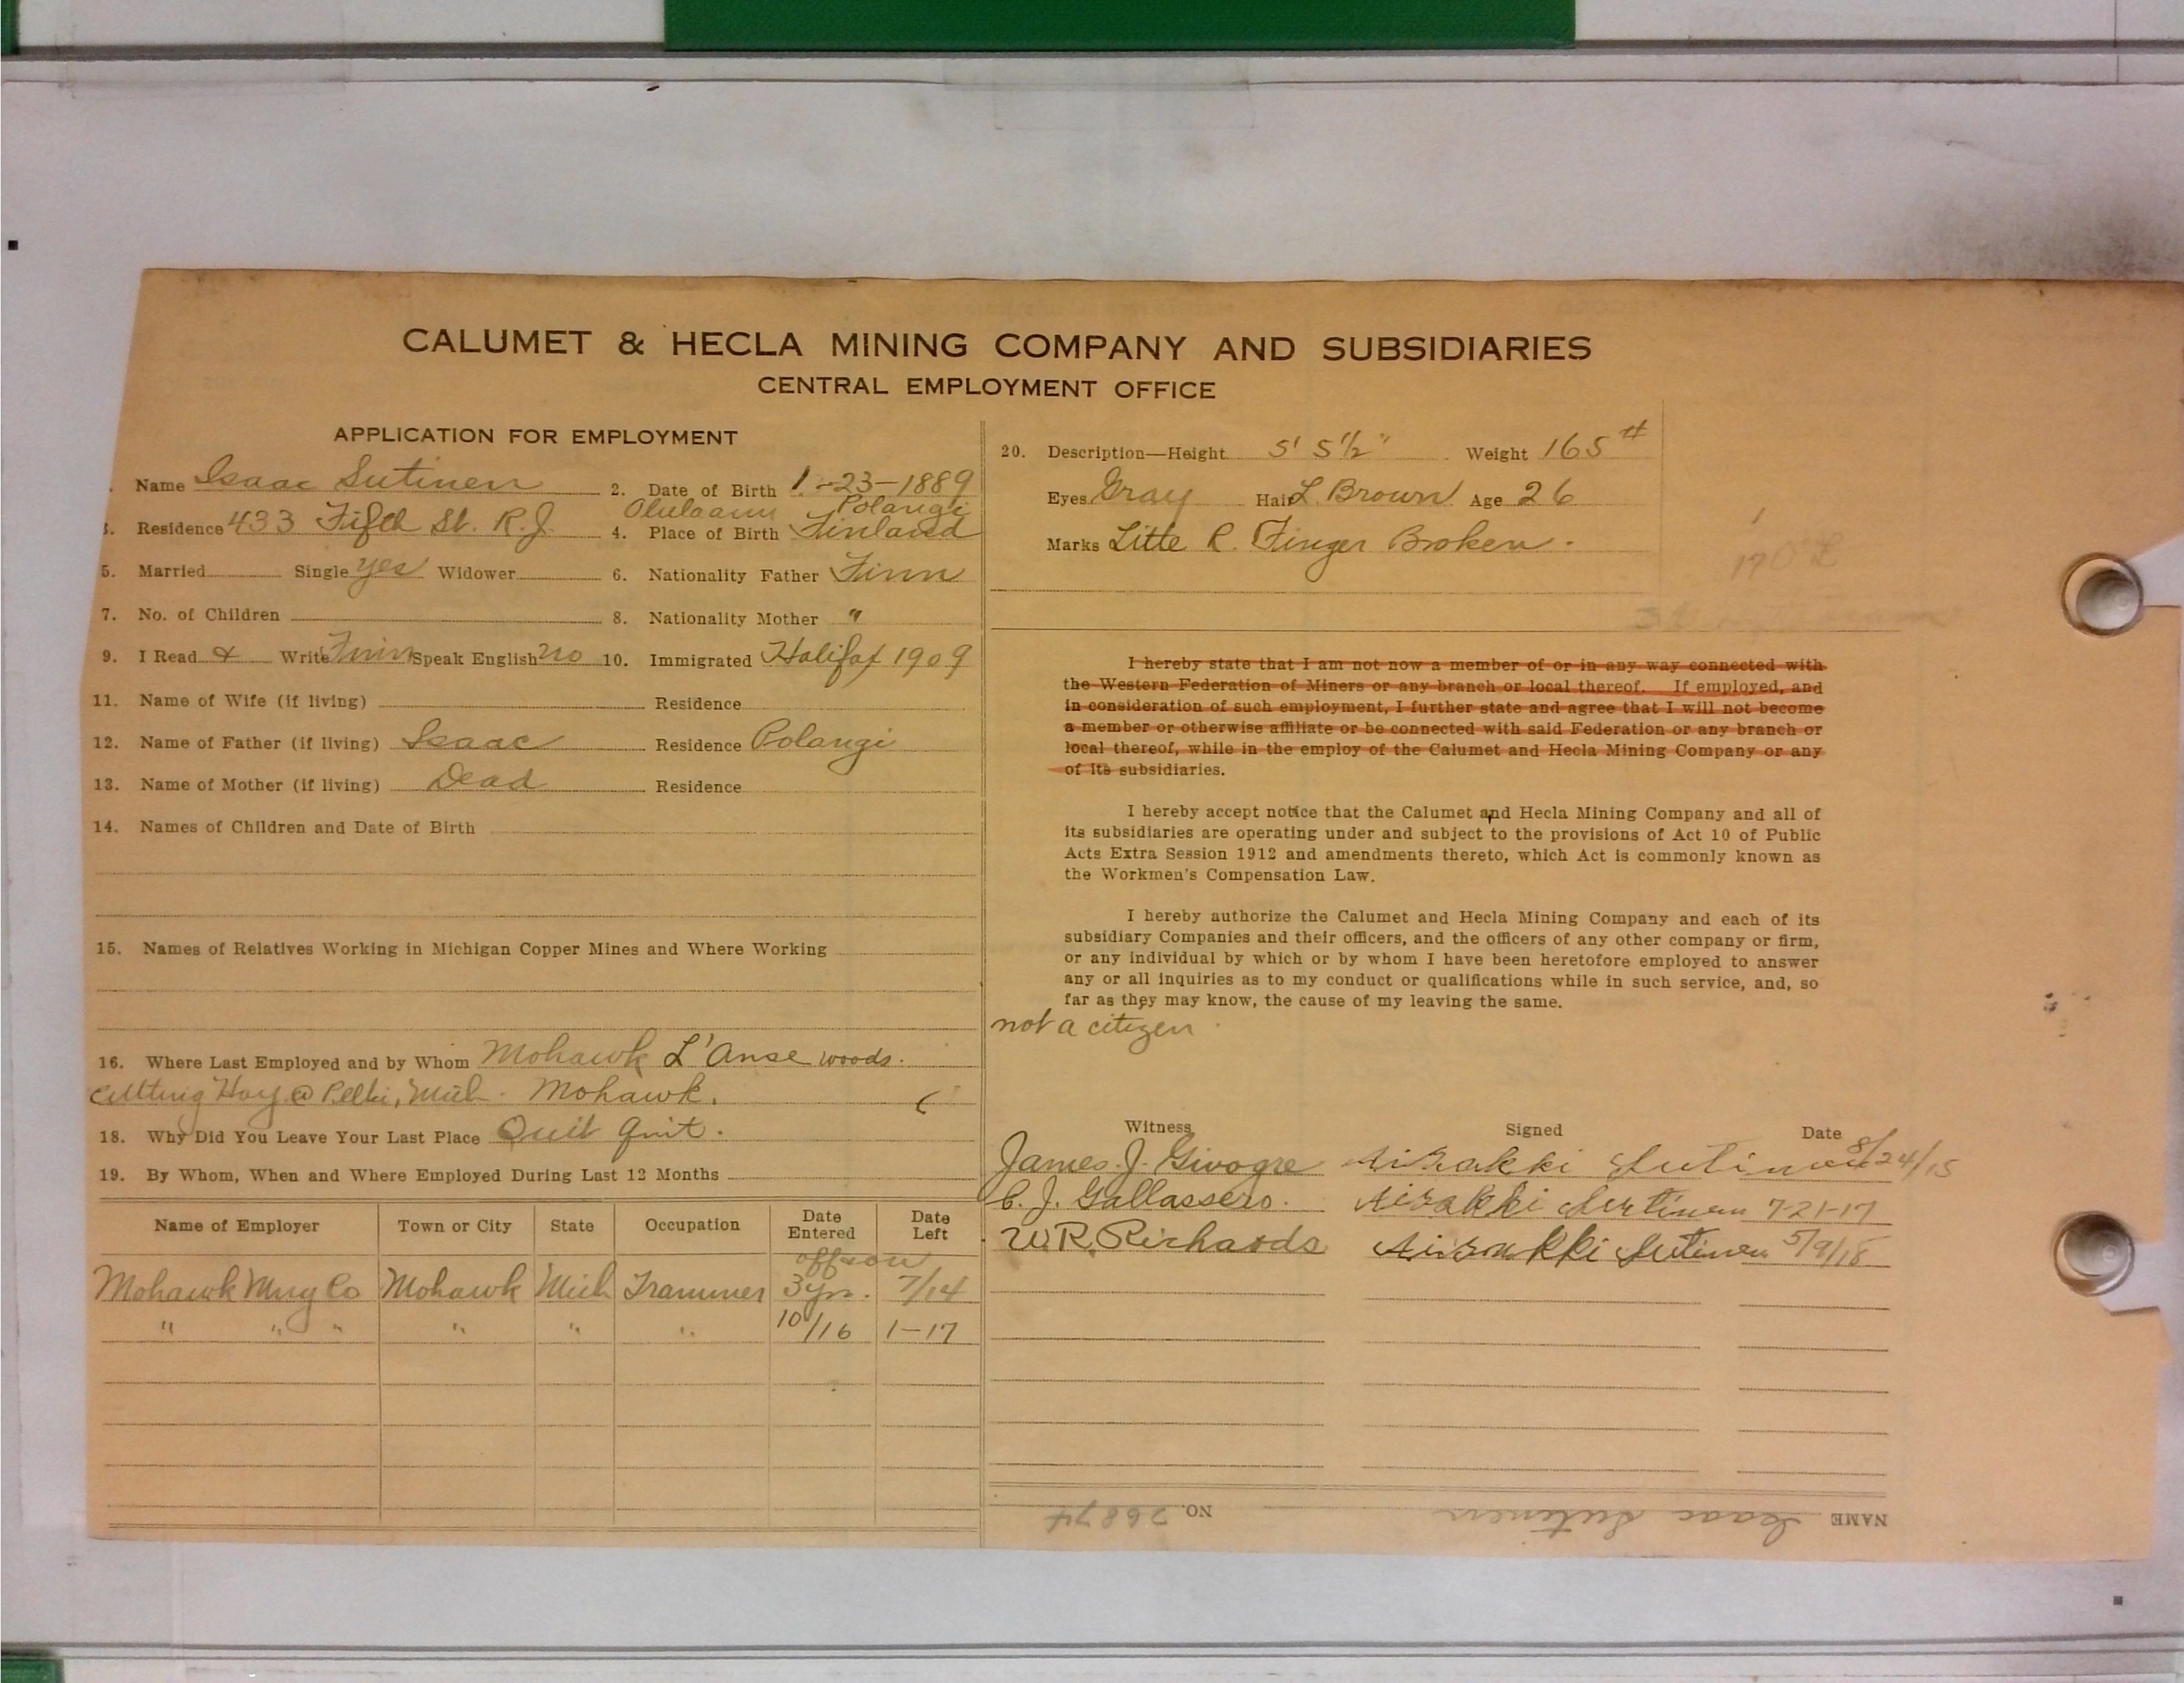 CALUMET & HECLA MINING COMPANY AND SUBSIDIARIES
CENTRAL EMPLOYMENT OFFICE
APPLICATION FOR EMPLOYMENT
. Name Isaac Sutinen 2. Date of Birth 1-23-1889
Polangi
3. Residence 433 Fifth St. R.J. 4. Place of Birth Finland
5. Married Single yes Widower 6. Nationality Father Finn
7. No. of Children 8. Nationality Mother "
9. I Read & Write Finn Speak English no 10. Immigrated Halifax 1909
11. Name of Wife (if living) Residence
12. Name of Father (if living) Isaac Residence Polangi
13. Name of Mother (if living) Dead Residence
14. Names of Children and Date of Birth
15. Names of Relatives Working in Michigan Copper Mines and Where Working
16. Where Last Employed and by Whom Mohawk L'Anse woods.
Cutting Hay @ Pelki, Mich. Mohawk.
18. Why Did You Leave Your Last Place Quit Quit.
19. By Whom, When and Where Employed During Last 12 Months
Name of Employer Town or City State Occupation Date Entered Date Left
off & on
Mohawk Mng Co Mohawk Mich Trammer 3 yrs. 7/14
" " " " " " 10/16 1-17
20. Description—Height 5' 5½" Weight 165 #
Eyes Gray Hair L. Brown Age 26
Marks Litte R. Finger Broken.
170
I hereby state that I am not now a member of or in any way connected with
the Western Federation of Miners or any branch or local thereof. If employed, and
in consideration of such employment, I further state and agree that I will not become
a member or otherwise affiliate or be connected with said Federation or any branch or
local thereof, while in the employ of the Calumet and Hecla Mining Company or any
of its subsidiaries.
I hereby accept notice that the Calumet and Hecla Mining Company and all of
its subsidiaries are operating under and subject to the provisions of Act 10 of Public
Acts Extra Session 1912 and amendments thereto, which Act is commonly known as
the Workmen's Compensation Law.
I hereby authorize the Calumet and Hecla Mining Company and each of its
subsidiary Companies and their officers, and the officers of any other company or firm,
or any individual by which or by whom I have been heretofore employed to answer
any or all inquiries as to my conduct or qualifications while in such service, and, so
far as they may know, the cause of my leaving the same.
not a citizen
Witness Signed Date
James J. Givogre Aisakki Sutinen 8/24/15
C. J. Gallassero. Aisakki Sutinen 7-21-17
W. R. Richards Aisakki Sutinen 5/9/18
NAME Isaac Sutinen NO. 26874